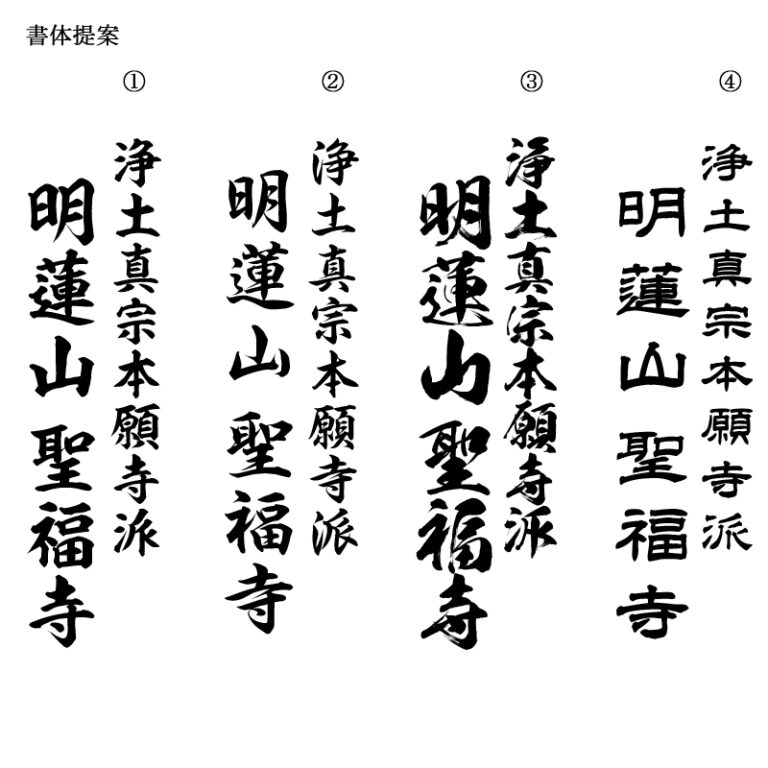 書体提案
①
浄土真宗本願寺派
明蓮山聖福寺
②
浄土真宗本願寺派
明蓮山聖福寺
③
浄土真宗本願寺派
明蓮山聖福寺
④
浄土真宗本願寺派
明蓮山聖福寺